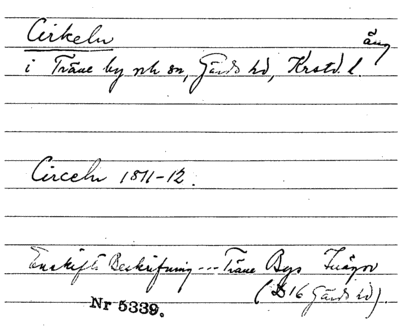 Cirkeln äng
i Träne by o sn, Gärds hd, Krstd. l.
Circeln 1811-12.
Enskifts Beskrifning --- Träne Bys Inägor
(B16 Gärds hd).
Nr 5339.